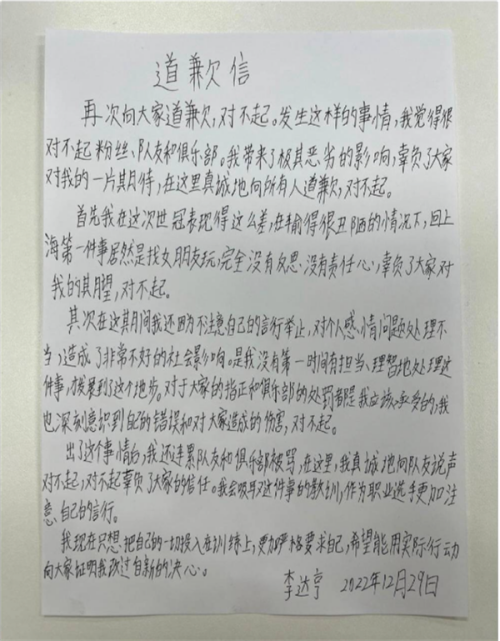 道歉信
再次向大家道歉,对不起。发生这样的事情,我觉得很
对不起粉丝、队友和俱乐部。我带来了极其恶劣的影响,辜负了大家
对我的一片期待,在这里真诚地向所有人道歉,对不起。
首先我在这次世冠表现得这么差,在输得很丑陋的情况下,回上
海第一件事居然是找女朋友玩,完全没有反思、没有责任心,辜负了大家对
我的期望,对不起。
其次在这期间我还因不注意自己的言行举止,对个人感情问题处理不
当,造成了非常不好的社会影响。是我没有第一时间有担当、理智地处理这
件事,发展到了这个地步。对于大家的指正和俱乐部的处罚都是我应该承受的,我
也深刻意识到自己的错误和对大家造成的伤害,对不起。
出了这个事情后,我还连累队友和俱乐部被骂,在这里,我真诚地向队友说声
对不起,对不起辜负了大家的信任。我会吸取这件事的教训,作为职业选手更加注
意自己的言行。
我现在只想把自己的一切投入在训练上,更加严格要求自己,希望能用实际行动
向大家证明我改过自新的决心。
李达亨 2022年12月29日